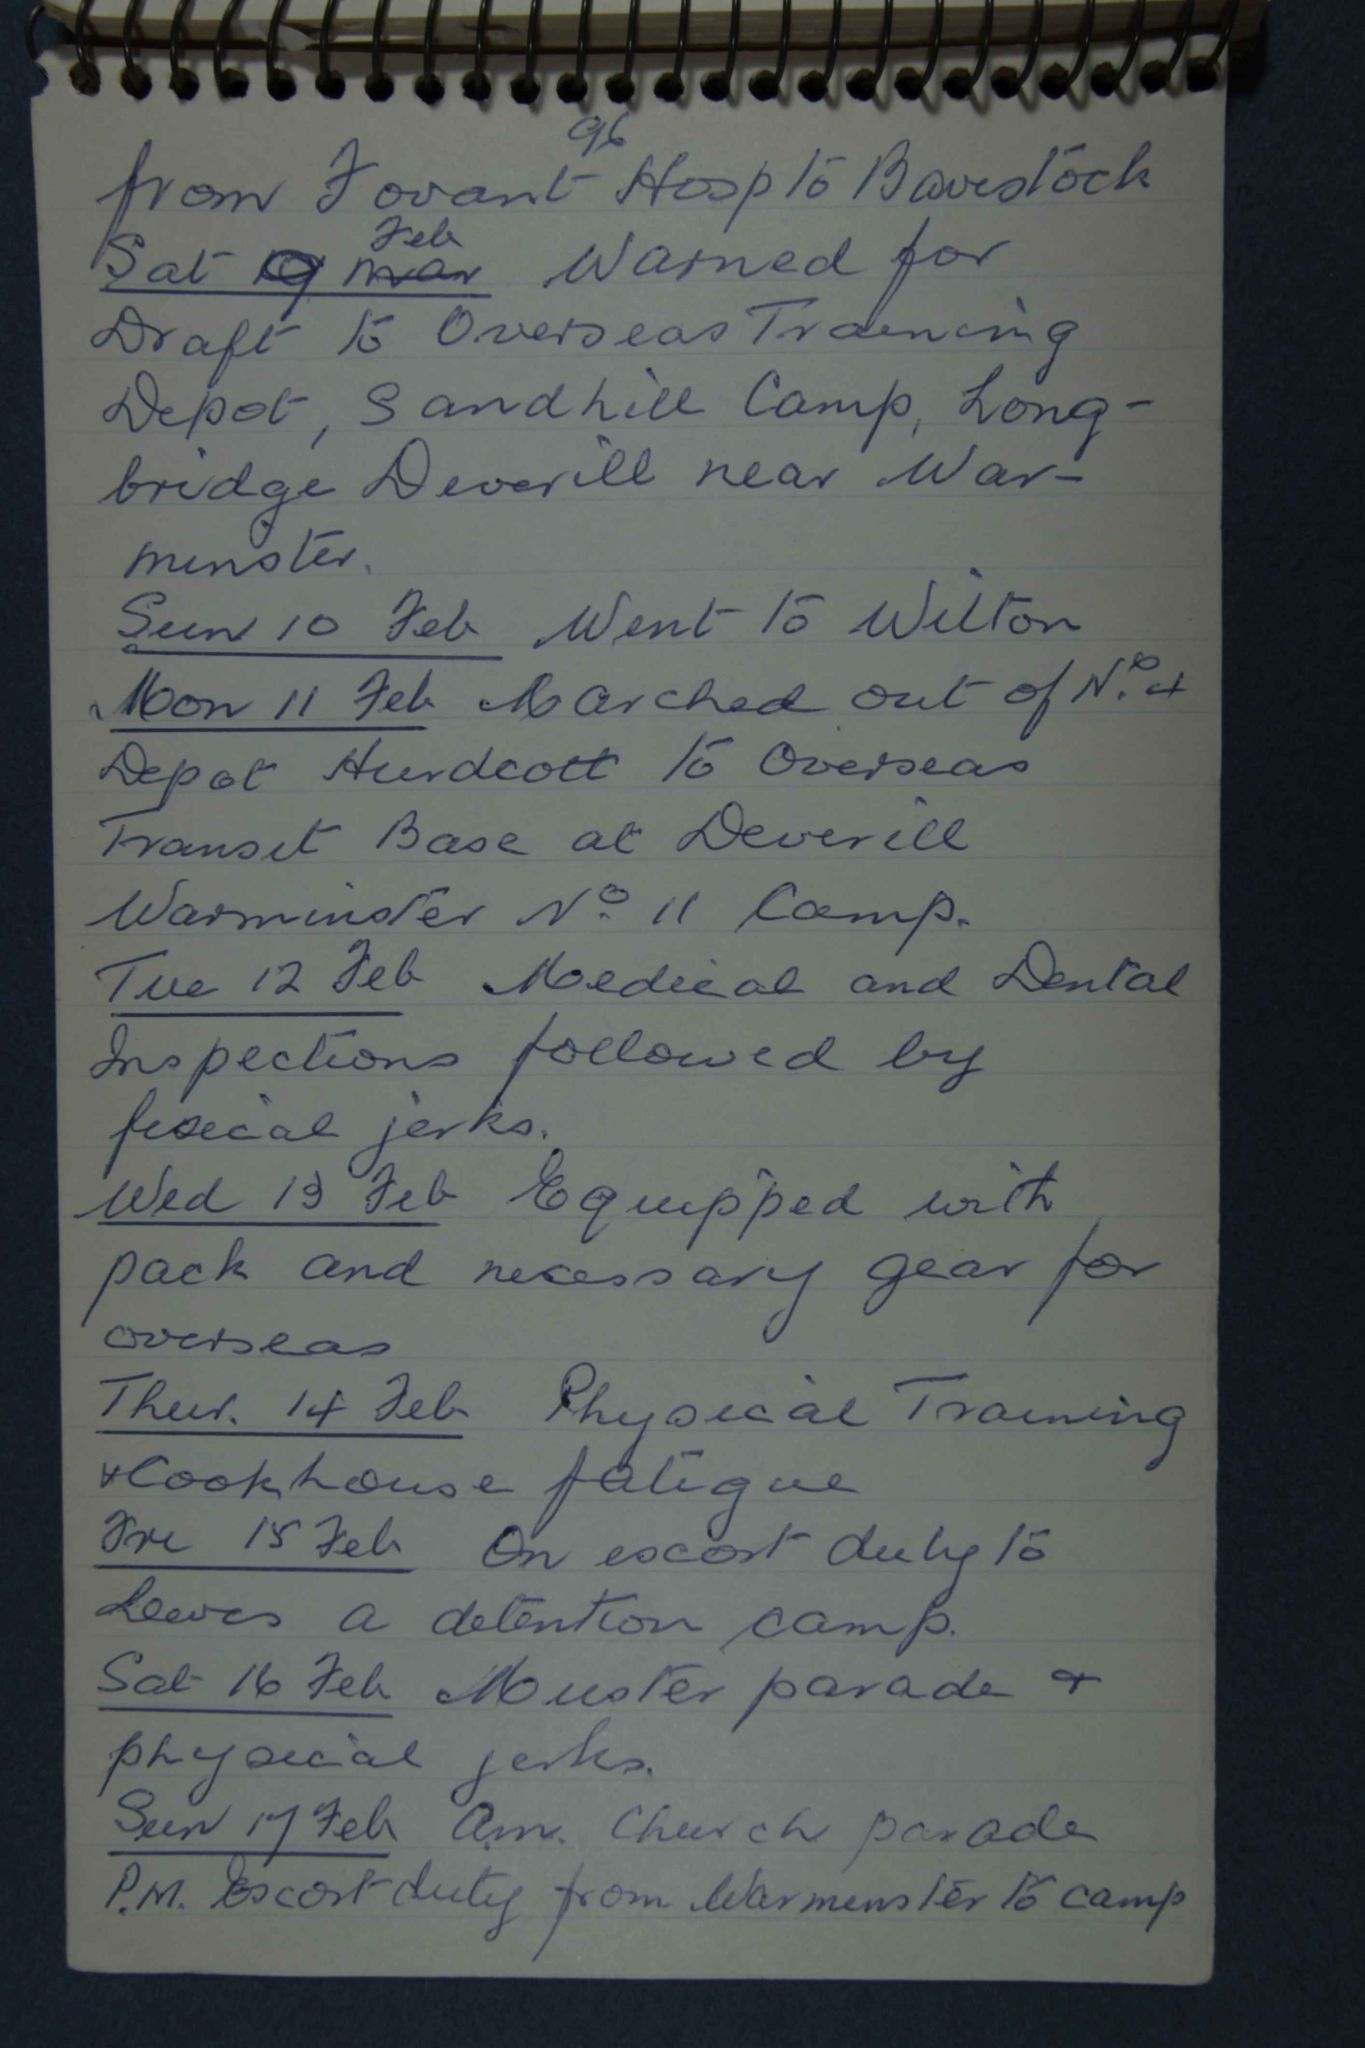 96
from Fovant Hosp to Baverstock
Sat 9 Feb Warned for
Draft to Overseas Training
Depot, Sandhill Camp, Long-
bridge Deverill near War-
minster.
Sun 10 Feb Went to Wilton
Mon 11 Feb Marched out of No. 4
Depot Hurdcott to Overseas
Transit Base at Deverill
Warminster No. 11 Camp.
Tue 12 Feb Medical and Dental
Inspections followed by
fisical jerks.
Wed 13 Feb Equipped with
pack and necessary gear for
overseas
Thur. 14 Feb Physical Training
& Cookhouse fatigue
Fri 15 Feb On escort duty to
Lewes a detention camp.
Sat 16 Feb Muster parade &
physical jerks.
Sun 17 Feb a.m. Church parade
P.M. Escort duty from Warminster to camp